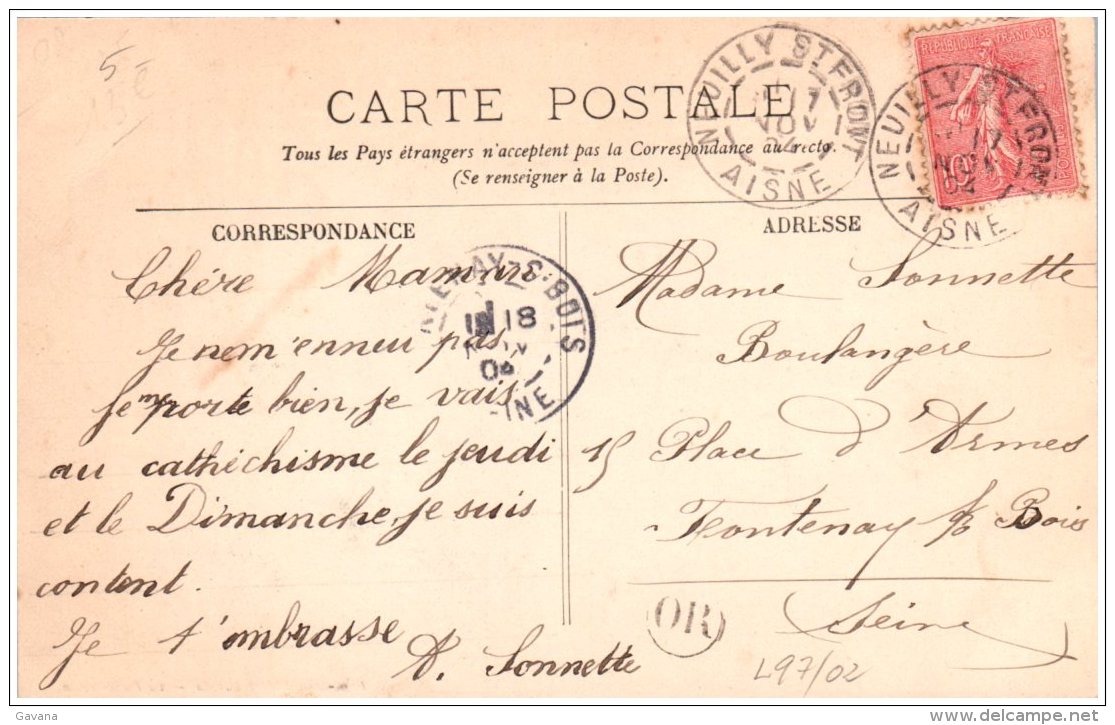 5-
CARTE POSTALE
Tous les Pays étrangers n'acceptent pas la Correspondance au recto.
(Se renseigner à la Poste).
NEUILLY ST FRONT
17
NOV
04
AISNE
REPUBLIQUE FRANÇAISE
10
NEUILLY ST FRONT
17
NOV
04
AISNE
CORRESPONDANCE
Chére Maman
Je nem'enneu pas,
Je me porte bien, je vais
au cathéchisme le jeudi
et le Dimanche, je suis
content.
Je t'ombrasse
A. Sonnette
FONTENAY-S-BOIS
18
NOV
04
SEINE
ADRESSE
Madame Sonnette
Boulangère
15 Place d'Armes
Fontenay s/s Bois
Seine
OR
L97/02
Gavana
www.delcampe.net